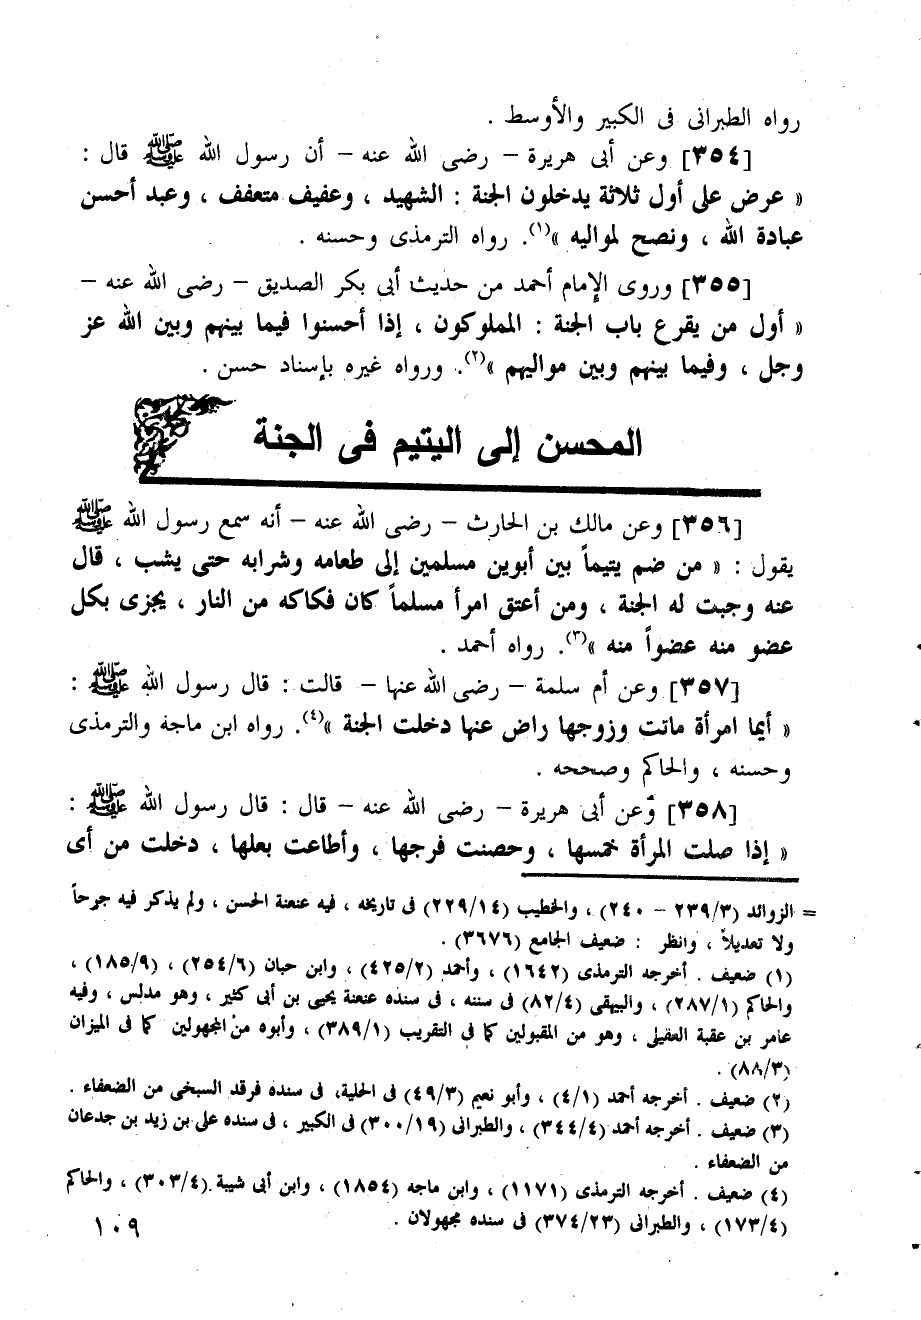 رواه الطبرانى فى الكبير والأوسط .
[٣٥٤] وعن أبى هريرة – رضى الله عنه – أن رسول الله ﷺ قال :
« عرض على أول ثلاثة يدخلون الجنة : الشهيد ، وعفيف متعفف ، وعبد أحسن
عبادة الله ، ونصح لمواليه »(١). رواه الترمذى وحسنه .
[٣٥٥] وروى الإمام أحمد من حديث أبى بكر الصديق – رضى الله عنه –
« أول من يقرع باب الجنة : المملوكون ، إذا أحسنوا فيما بينهم وبين الله عز
وجل ، وفيما بينهم وبين مواليهم »(٢). ورواه غيره بإسناد حسن .
المحسن إلى اليتيم فى الجنة
[٣٥٦] وعن مالك بن الحارث – رضى الله عنه – أنه سمع رسول الله ﷺ
يقول : « من ضم يتيماً بين أبوين مسلمين إلى طعامه وشرابه حتى يشب ، قال
عنه وجبت له الجنة ، ومن أعتق امرأ مسلماً كان فكاكه من النار ، يجزى بكل
عضو منه عضواً منه »(٣). رواه أحمد .
[٣٥٧] وعن أم سلمة – رضى الله عنها – قالت : قال رسول الله ﷺ :
« أيما امرأة ماتت وزوجها راض عنها دخلت الجنة »(٤). رواه ابن ماجه والترمذى
وحسنه ، والحاكم وصححه .
[٣٥٨] وعن أبى هريرة – رضى الله عنه – قال : قال رسول الله ﷺ :
« إذا صلت المرأة خمسها ، وحصنت فرجها ، وأطاعت بعلها ، دخلت من أى
= الزوائد (٢٣٩/٣ – ٢٤٠) ، والخطيب (٢٢٩/١٤) فى تاريخه ، فيه عنعنة الحسن ، ولم يذكر فيه جرحاً
ولا تعديلاً ، وانظر : ضعيف الجامع (٣٦٧٦) .
(١) ضعيف . أخرجه الترمذى (١٦٤٢) ، وأحمد (٤٢٥/٢) ، وابن حبان (٢٥٤/٦) ، (١٨٥/٩) ،
والحاكم (٢٨٧/١) ، والبيهقى (٨٢/٤) فى سننه ، فى سنده عنعنة يحيى بن أبى كثير ، وهو مدلس ، وفيه
عامر بن عقبة العقيلى ، وهو من المقبولين كما فى التقريب (٣٨٩/١) ، وأبوه من المجهولين كما فى الميزان
(٨٨/٣) .
(٢) ضعيف . أخرجه أحمد (٤/١) ، وأبو نعيم (٤٩/٣) فى الحلية، فى سنده فرقد السبخى من الضعفاء .
(٣) ضعيف . أخرجه أحمد (٣٤٤/٤) ، والطبرانى (٣٠٠/١٩) فى الكبير ، فى سنده على بن زيد بن جدعان
من الضعفاء .
(٤) ضعيف . أخرجه الترمذى (١١٧١) ، وابن ماجه (١٨٥٤) ، وابن أبى شيبة (٣٠٣/٤) ، والحاكم
(١٧٣/٤) ، والطبرانى (٣٧٤/٢٣) فى سنده مجهولان .
١٠٩